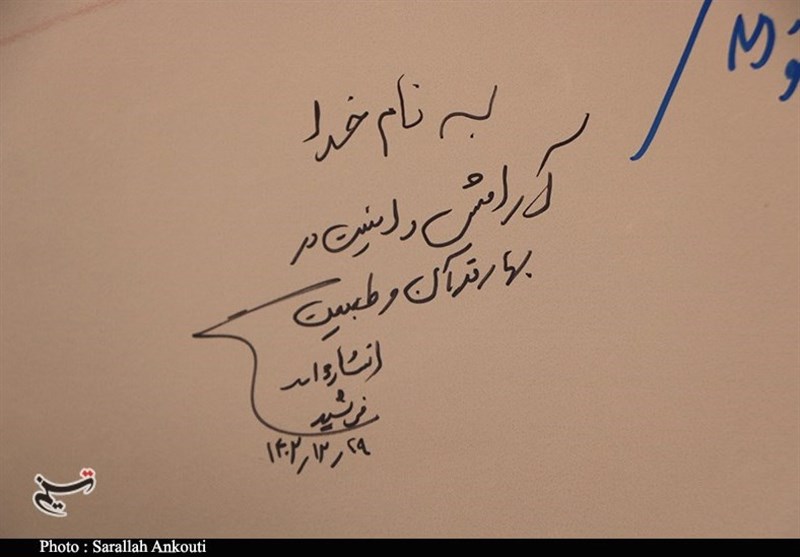 به نام خدا
آرامش و امنیت در
بهار قرآن و طبیعت
انشاءالله
۱۴۰۳/۱۲/۲۹
تسنیم
Photo : Sarallah Ankouti